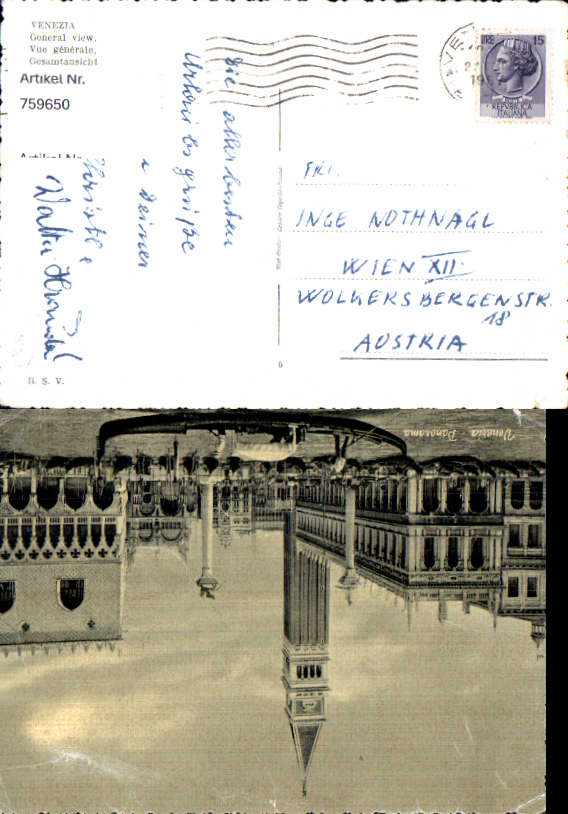 VENEZIA
General view.
Vue générale.
Gesamtansicht
Artikel Nr.
759650
Die allerbesten
Urlaubsgrüße
Deiner
Christl
Walter
B. S. V.
6
LIRE 15
REPVBBLICA
ITALIANA
FRL.
INGE NOTHNAGL
WIEN XII.
WOLKERSBERGENSTR.
18
AUSTRIA
Venezia - Panorama